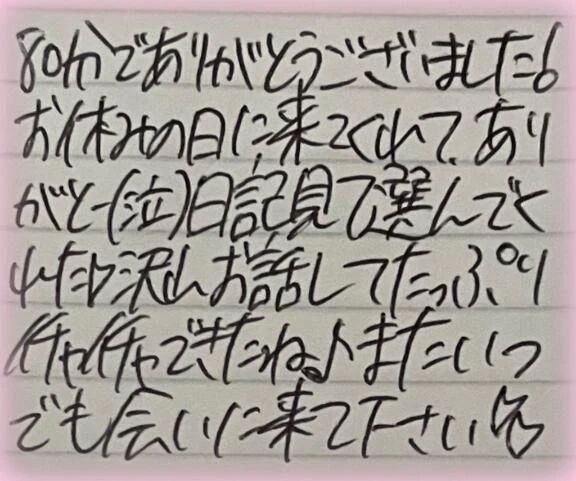 80分でありがとうございました
お休みの日に来てくれて、あり
がとー(泣)日記見て選んでく
れたり沢山お話してたっぷり
イチャイチャできたね♪またいつ
でも会いに来て下さい